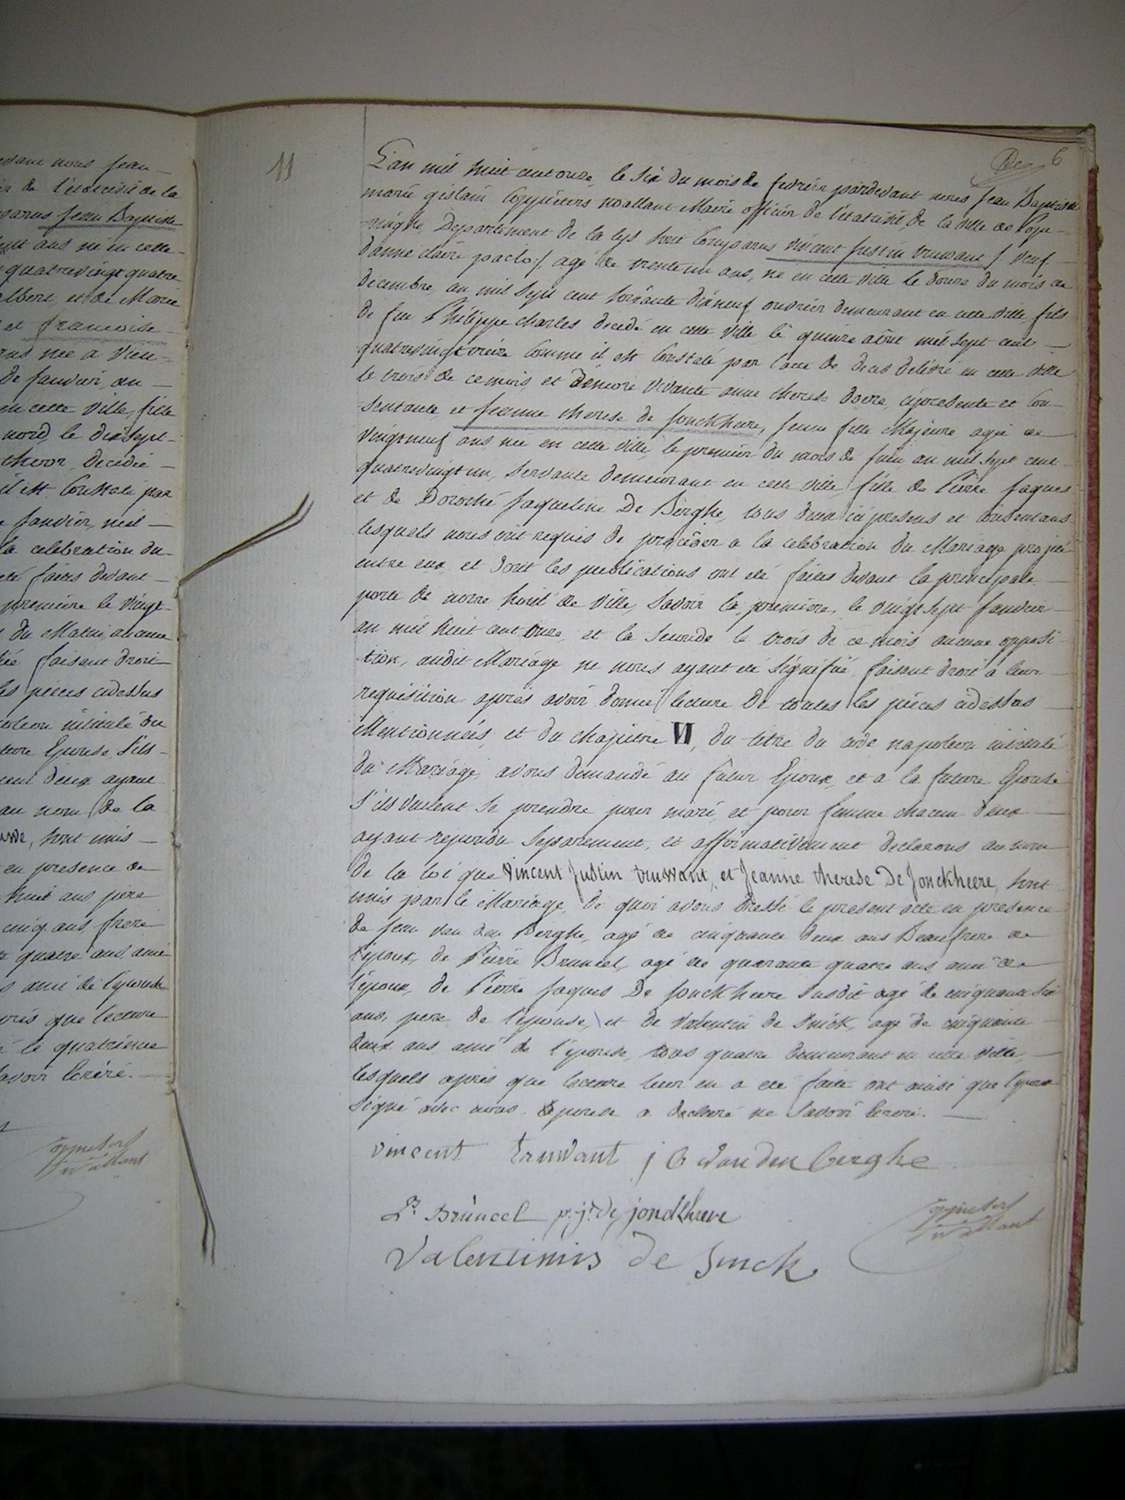 devant nous Jean
de l'état civil de la
Jean Baptiste
ans né en cette
quatrevingt quatre
albert et de Marie
et francoise
née a
de Janvier an
en cette ville, fille
nord, le dixsept
décédé
il est Constaté par
Janvier, mil
la celebration du
été faites devant
premiere le vingt
du Matin, aucune
faisant droit
les pieces cidessus
napoleon intitulé du
future Epouse s'ils
deux ayant
au nom de la
sont unis
en presence de
huit ans pere
cinq ans frere
quatre ans, ami
ami de l'épouse
que lecture
le quatrieme
savoir écrire.
11
6
L'an mil huit cent onze, le six du mois de fevrier pardevant nous Jean Baptiste
marie gislain wallant Maire officier de l'état civil de la ville de Pope-
ringhe Departement de la lys sont Comparus vincent Justin truwant / veuf
d'anne claire / agé de trente un ans, né en cette ville le douze du mois de
decembre an mil sept cent soixante dixneuf ouvrier demeurant en cette ville fils
de feu Philippe charles decedé en cette ville le quinze mil sept cent
quatrevingt treize Comme il est Constaté par l'acte de deces delivré en cette ville
le trois de ce mois et vivante anne therese cipresente et Con-
sentante et Jeanne therese de Jonckheere, Jeune fille Majeure agé de
Vingtneuf ans, née en cette ville le premier du mois de Juin an mil sept cent
quatrevingt un, servante demeurant en cette ville, fille de Pierre Jaques
et de Dorothé Jaqueline De Berghe, tous deux ici presens et Consentans
lesquels nous ont requis de proceder a la celebration du Mariage projeté
entre eux, et dont les publications ont été faites devant la principale
porte de notre hotel de ville, Savoir la premiere, le vingt sept Janvier
an mil huit cent onze, et la seconde le trois de ce mois aucune opposi-
tion, audit Mariage ne nous ayant été signifié, faisant droit a leur
requisition aprés avoir donné lecture de toutes les piéces cidessus
Mentionnées, et du chapitre VI, du titre du code napoleon intitulé
du Mariage, avons demandé au futur Epoux, et a la future Epouse
s'ils veulent se prendre pour mari, et pour femme chacun deux
ayant repondu separement, et affirmativement declarons au nom
de la loi que Vincent Justin truwant, et Jeanne therese De Jonckheere, sont
unis par le Mariage, de quoi avons dressé le present acte en presence
de Jean van den Berghe, agé de cinquante deux ans Beaufrere de
l'époux, de Pierre Bruneel, agé de quarante quatre ans ami de
l'époux, de Pierre Jaques De Jonckheere susdit agé de cinquante six
ans, pere de l'épouse, et de Valentin de Snick, agé de cinquante
deux ans ami de l'épouse, tous quatre demeurant en cette ville
lesquels aprés que lecture leur en a été faite ont ainsi que l'époux
signé avec nous. l'épouse a declaré ne savoir écrire.
vincent truwant j B vanden berghe
Pr Bruneel p. j. de jonckheere
Valentinus de Snick